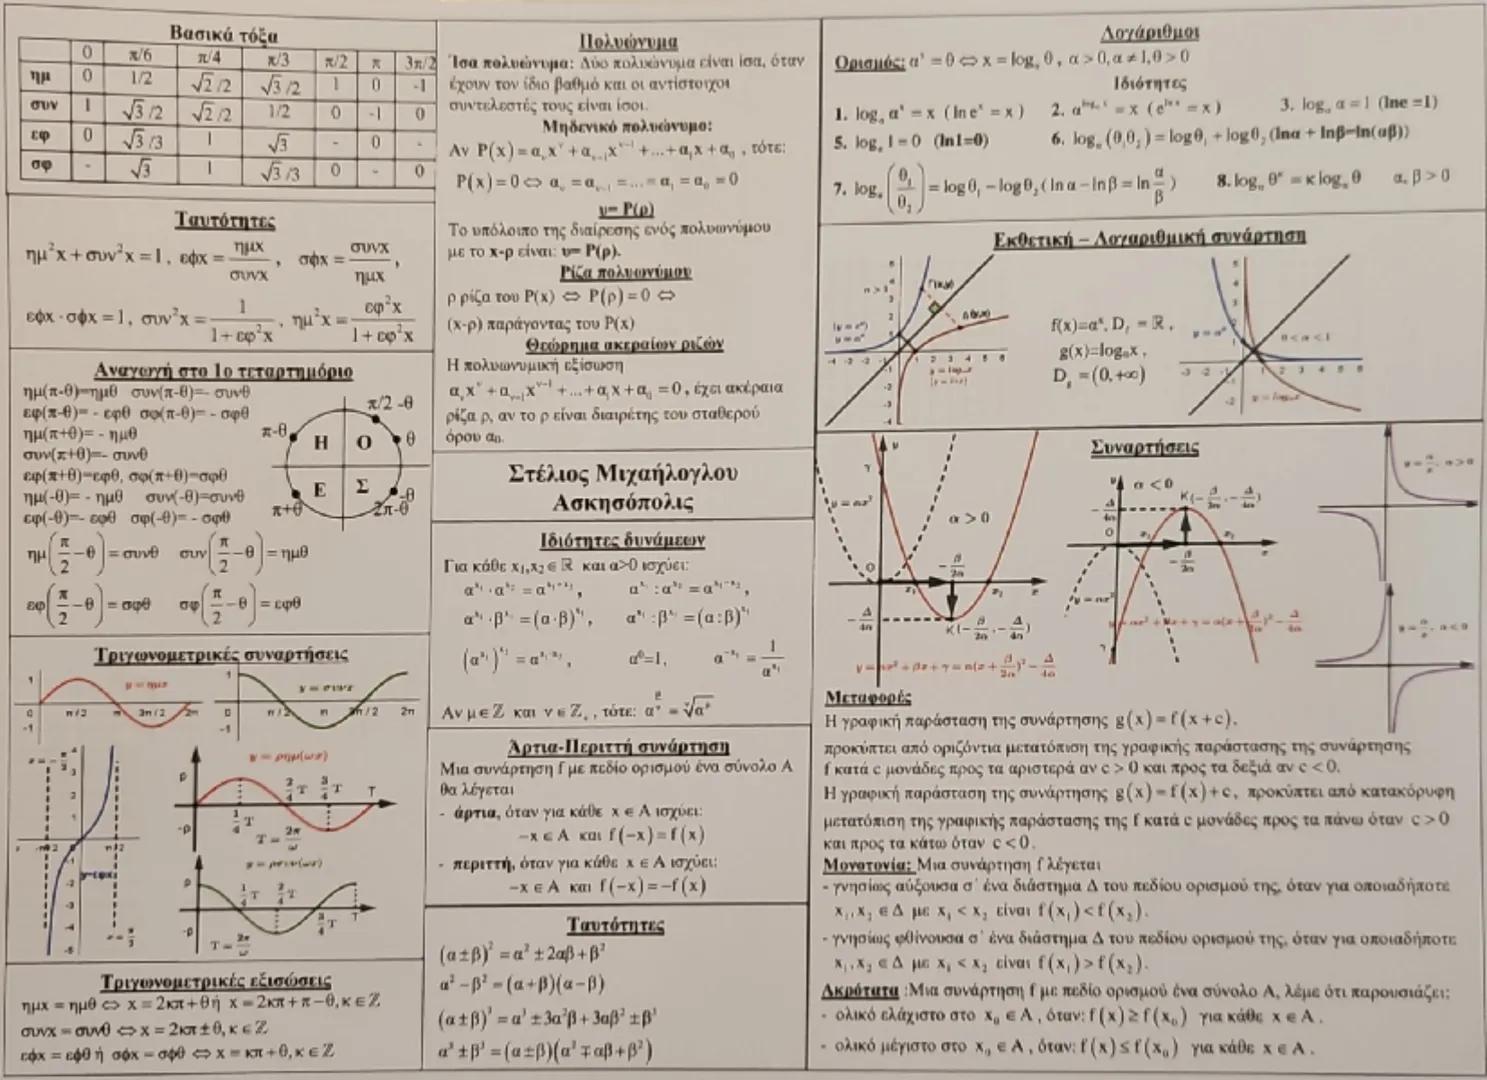 Βασικά τόξα
0 π/6 π/4 π/3 π/2 π 3π/2
ημ 0 1/2 √2/2 √3/2 1 0 -1
συν 1 √3/2 √2/2 1/2 0 -1 0
εφ 0 √3/3 1 √3 - 0 -
σφ - √3 1 √3/3 0 - 0
Ταυτότητες
ημ²x+συν²x=1, εφx=ημx/συνx, σφx=συνx/ημx,
εφx·σφx=1, συν²x=1/(1+εφ²x), ημ²x=εφ²x/(1+εφ²x)
Αναγωγή στο 1ο τεταρτημόριο
ημ(π-θ)=ημθ συν(π-θ)=- συνθ
εφ(π-θ)= - εφθ σφ(π-θ)= - σφθ
ημ(π+θ)= - ημθ
συν(π+θ)=- συνθ
εφ(π+θ)=εφθ, σφ(π+θ)=σφθ
ημ(-θ)= - ημθ συν(-θ)=συνθ
εφ(-θ)=- εφθ σφ(-θ)= - σφθ
ημ(π/2-θ)=συνθ συν(π/2-θ)=ημθ
εφ(π/2-θ)=σφθ σφ(π/2-θ)=εφθ
π/2 -θ
π-θ Η Ο θ
Ε Σ -θ
π+θ 2π-θ
Τριγωνομετρικές συναρτήσεις
y = ημx
y = συνx
0 π/2 π 3π/2 2π
0 π/2 π 3π/2 2π
y = ρημ(ωx)
T = 2π/ω
y=εφx
y = ρσυν(ωx)
T = 2π/ω
Τριγωνομετρικές εξισώσεις
ημx = ημθ ⇔ x = 2κπ+θ ή x = 2κπ+π-θ, κ∈ℤ
συνx = συνθ ⇔ x = 2κπ±θ, κ∈ℤ
εφx = εφθ ή σφx = σφθ ⇔ x = κπ+θ, κ∈ℤ
Πολυώνυμα
Ίσα πολυώνυμα: Δύο πολυώνυμα είναι ίσα, όταν
έχουν τον ίδιο βαθμό και οι αντίστοιχοι
συντελεστές τους είναι ίσοι.
Μηδενικό πολυώνυμο:
Αν P(x)=αᵥxᵛ+αᵥ₋₁xᵛ⁻¹+...+α₁x+α₀, τότε:
P(x)=0⇔αᵥ=αᵥ₋₁=...=α₁=α₀=0
υ= P(ρ)
Το υπόλοιπο της διαίρεσης ενός πολυωνύμου
με το x-ρ είναι: υ= P(ρ).
Ρίζα πολυωνύμου
ρ ρίζα του P(x) ⇔ P(ρ)=0 ⇔
(x-ρ) παράγοντας του P(x)
Θεώρημα ακεραίων ριζών
Η πολυωνυμική εξίσωση
αᵥxᵛ+αᵥ₋₁xᵛ⁻¹+...+α₁x+α₀=0, έχει ακέραια
ρίζα ρ, αν το ρ είναι διαιρέτης του σταθερού
όρου α₀.
Στέλιος Μιχαήλογλου
Ασκησόπολις
Ιδιότητες δυνάμεων
Για κάθε x₁,x₂∈ℝ και α>0 ισχύει:
α^x₁·α^x₂=α^(x₁+x₂), α^x₁:α^x₂=α^(x₁-x₂),
α^x₁·β^x₁=(α·β)^x₁, α^x₁:β^x₁=(α:β)^x₁
(α^x₁)^x₂=α^(x₁·x₂), α⁰=1, α^(-x₁)=1/α^x₁
Αν μ∈ℤ και ν∈ℤ₊, τότε: α^(μ/ν)=ᵛ√α^μ
Άρτια-Περιττή συνάρτηση
Μια συνάρτηση f με πεδίο ορισμού ένα σύνολο Α
θα λέγεται
- άρτια, όταν για κάθε x∈A ισχύει:
-x∈A και f(-x)=f(x)
- περιττή, όταν για κάθε x∈A ισχύει:
-x∈A και f(-x)=-f(x)
Ταυτότητες
(α±β)²=α²±2αβ+β²
α²-β²=(α+β)(α-β)
(α±β)³=α³±3α²β+3αβ²±β³
α³±β³=(α±β)(α²∓αβ+β²)
Λογάριθμοι
Ορισμός: αˣ=θ⇔x=logₐθ, α>0,α≠1,θ>0
Ιδιότητες
1. logₐαˣ=x (lneˣ=x) 2. α^(logₐx)=x (e^(lnx)=x) 3. logₐα=1 (lne =1)
5. logₐ1=0 (ln1=0) 6. logₐ(θ₁θ₂)=logθ₁+logθ₂ (lnα + lnβ=ln(αβ))
7. logₐ(θ₁/θ₂)=logθ₁-logθ₂ (lnα-lnβ=ln α/β) 8. logₐθ^κ=κlogₐθ α, β>0
Εκθετική – Λογαριθμική συνάρτηση
f(x)=αˣ, D_f = ℝ,
g(x)=logₐx,
D_g=(0,+∞)
α > 1
0 < α < 1
Συναρτήσεις
y = αx²
α > 0
K(-β/2α, -Δ/4α)
y = αx²+βx+γ=α(x+β/2α)²-Δ/4α
α < 0
K(-β/2α, -Δ/4α)
y = αx²
y = αx²+βx+γ=α(x+β/2α)²-Δ/4α
y = α/x, α>0
y = α/x, α<0
Μεταφορές
Η γραφική παράσταση της συνάρτησης g(x)=f(x+c),
προκύπτει από οριζόντια μετατόπιση της γραφικής παράστασης της συνάρτησης
f κατά c μονάδες προς τα αριστερά αν c > 0 και προς τα δεξιά αν c < 0.
Η γραφική παράσταση της συνάρτησης g(x)=f(x)+c, προκύπτει από κατακόρυφη
μετατόπιση της γραφικής παράστασης της f κατά c μονάδες προς τα πάνω όταν c > 0
και προς τα κάτω όταν c < 0.
Μονοτονία: Μια συνάρτηση f λέγεται
- γνησίως αύξουσα σ΄ ένα διάστημα Δ του πεδίου ορισμού της, όταν για οποιαδήποτε
x₁,x₂∈Δ με x₁<x₂ είναι f(x₁)<f(x₂).
- γνησίως φθίνουσα σ΄ ένα διάστημα Δ του πεδίου ορισμού της, όταν για οποιαδήποτε
x₁,x₂∈Δ με x₁<x₂ είναι f(x₁)>f(x₂).
Ακρότατα :Μια συνάρτηση f με πεδίο ορισμού ένα σύνολο Α, λέμε ότι παρουσιάζει:
- ολικό ελάχιστο στο x₀∈A, όταν: f(x)≥f(x₀) για κάθε x∈A.
- ολικό μέγιστο στο x₀∈A, όταν: f(x)≤f(x₀) για κάθε x∈A.